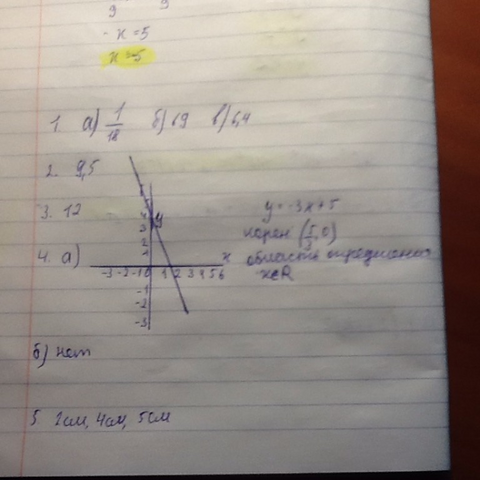 9 9
- x = 5
x = 5
1. а) 1/18 б) 19 в) 6,4
2. 9,5
3. 12
y = -3x + 5
корен (5/3, 0)
4. а)
y
x
область определения
x∈R
-3 -2 -1 0 1 2 3 4 5 6
-1
-2
-3
б) нет
5. 2см, 4см, 5см